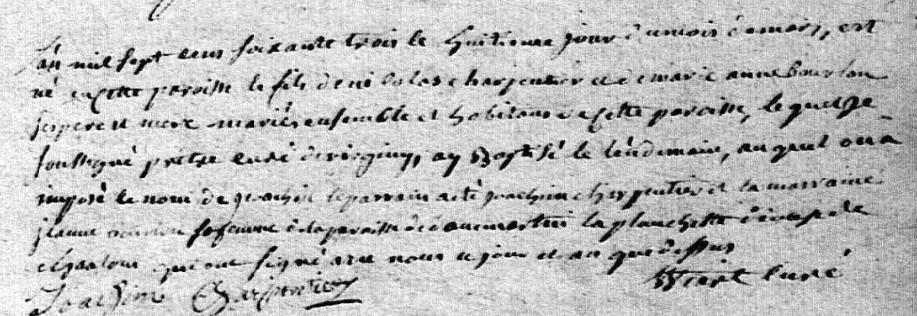 L'an mil sept cens soixante trois le huitieme jour du mois de mars, est
né en cette paroisse le fils de nicolas charpentier et de marie anne bourlon
ses pere et mere mariés ensemble et habitans de cette paroisse, lequel je
soussigné prêtre curé de virginy, ay Baptisé le lendemain, auquel on a
imposé le nom de joachin le parrain a été joachin charpentier et la marraine
jeanne sa femme de la paroisse de dommartin la planchette diocese de
chaalons qui ont signé avec nous ce jour et an que dessus
Joachin Charpentier curé